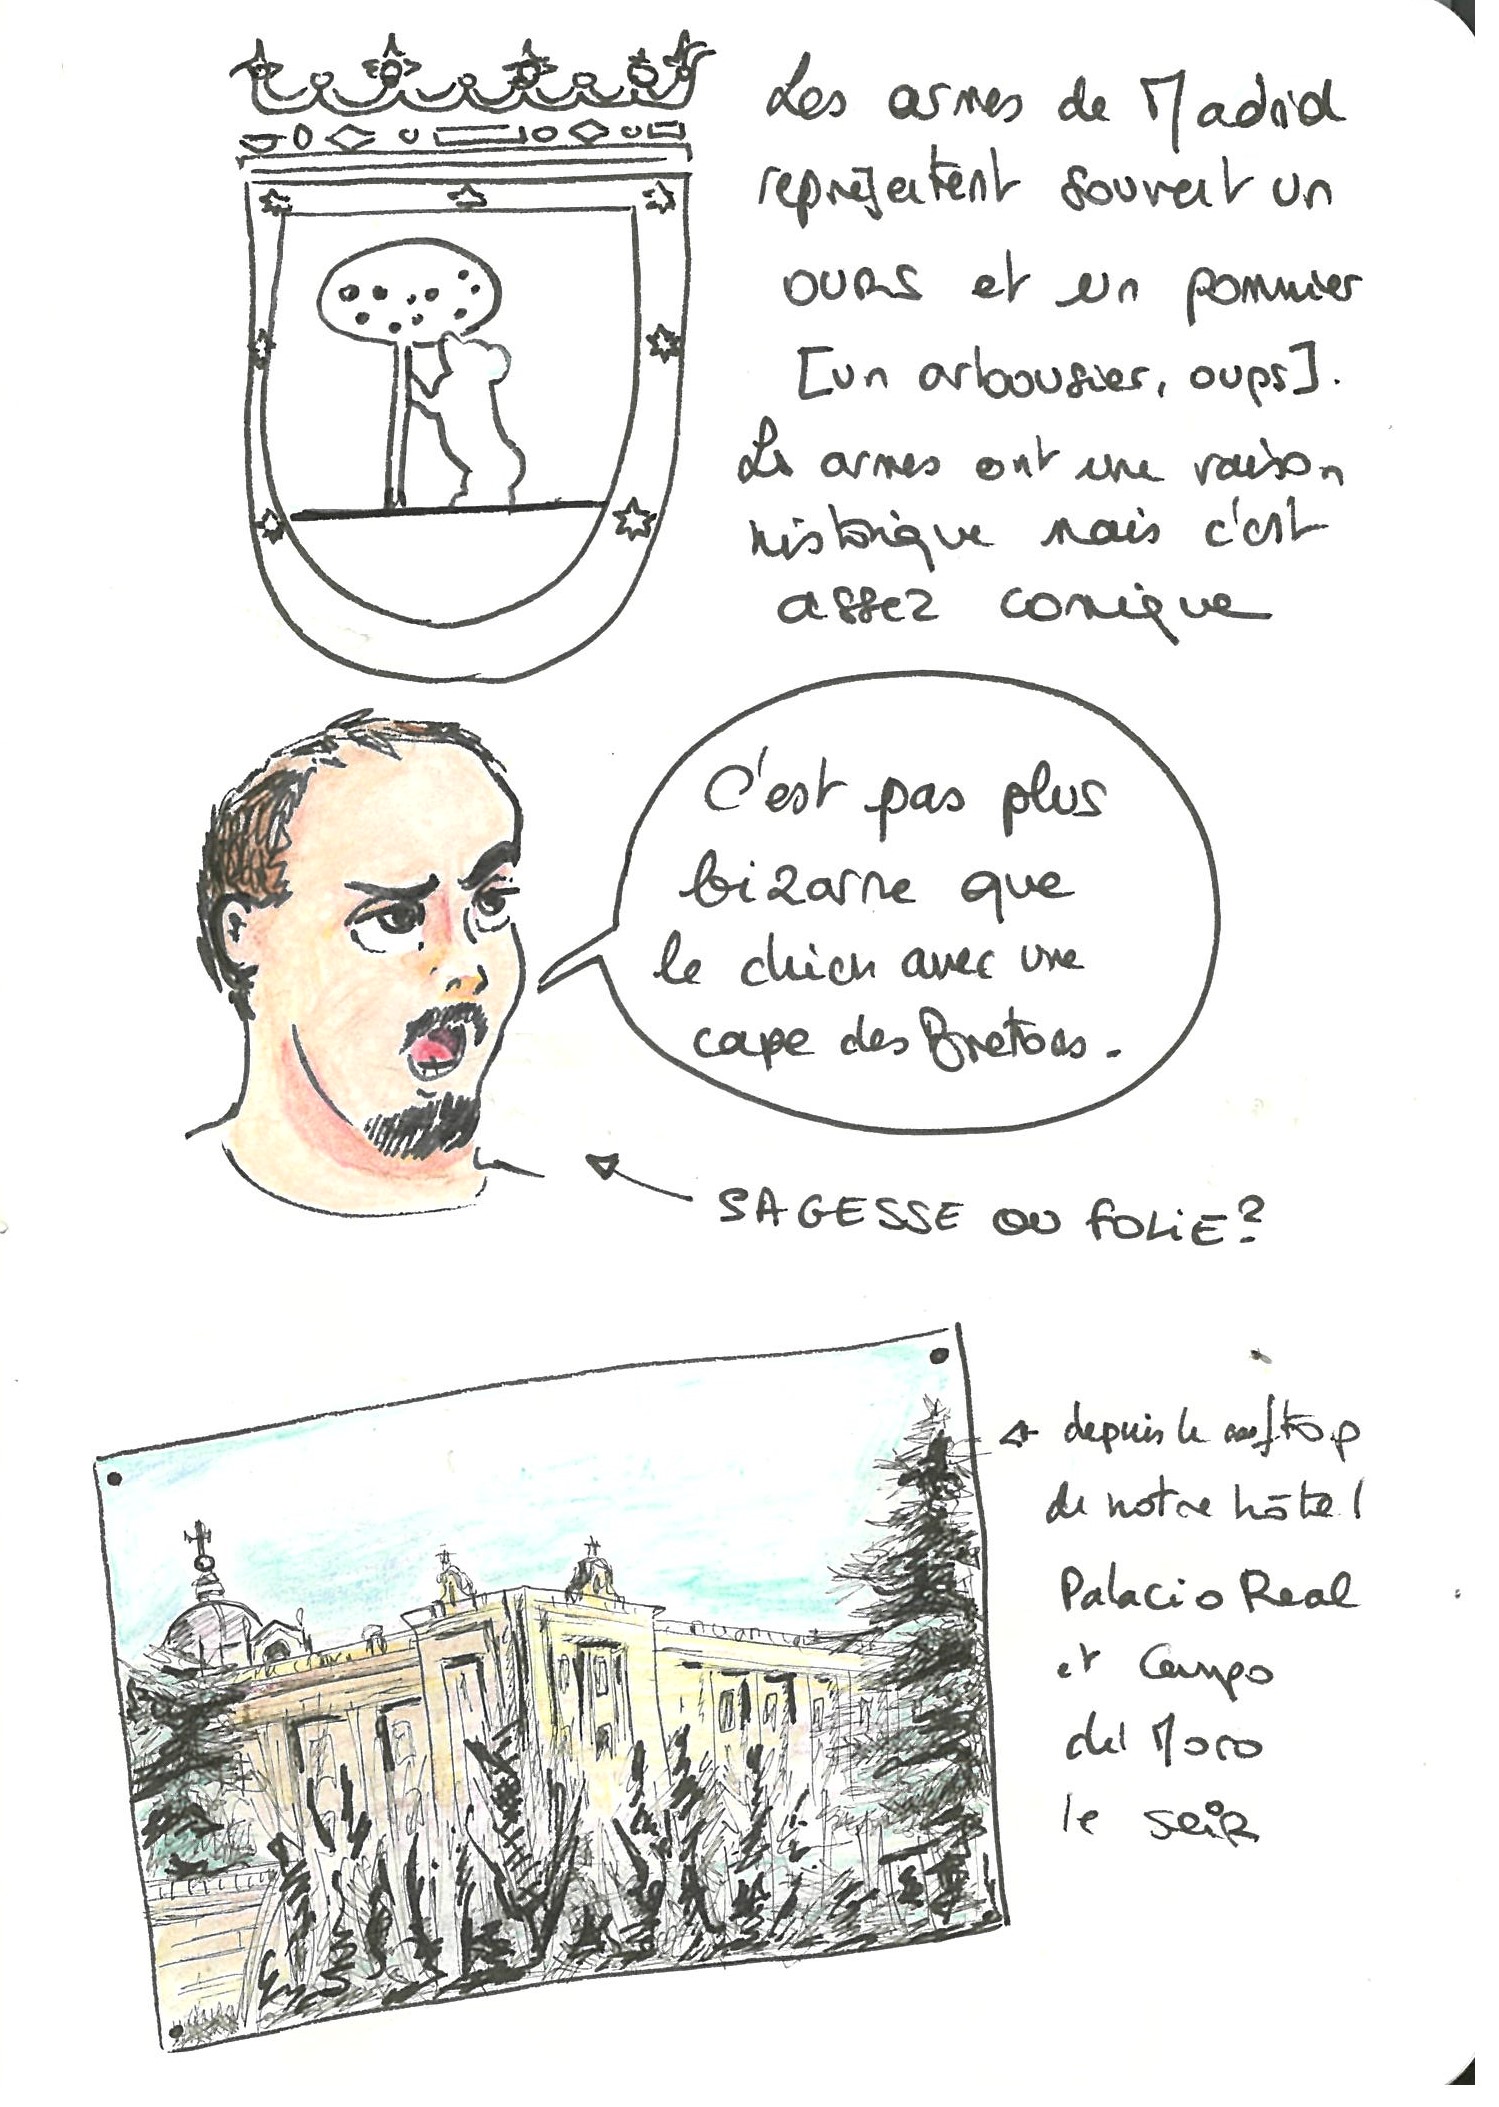 Les armes de Madrid
représentent souvent un
OURS et un pommier
[un arbousier, oups].
Les armes ont une raison
historique mais c'est
assez comique
C'est pas plus
bizarre que
le chien avec une
cape des Bretons.
SAGESSE OU FOLIE?
depuis le rooftop
de notre hôtel
Palacio Real
et Campo
del Moro
le soir